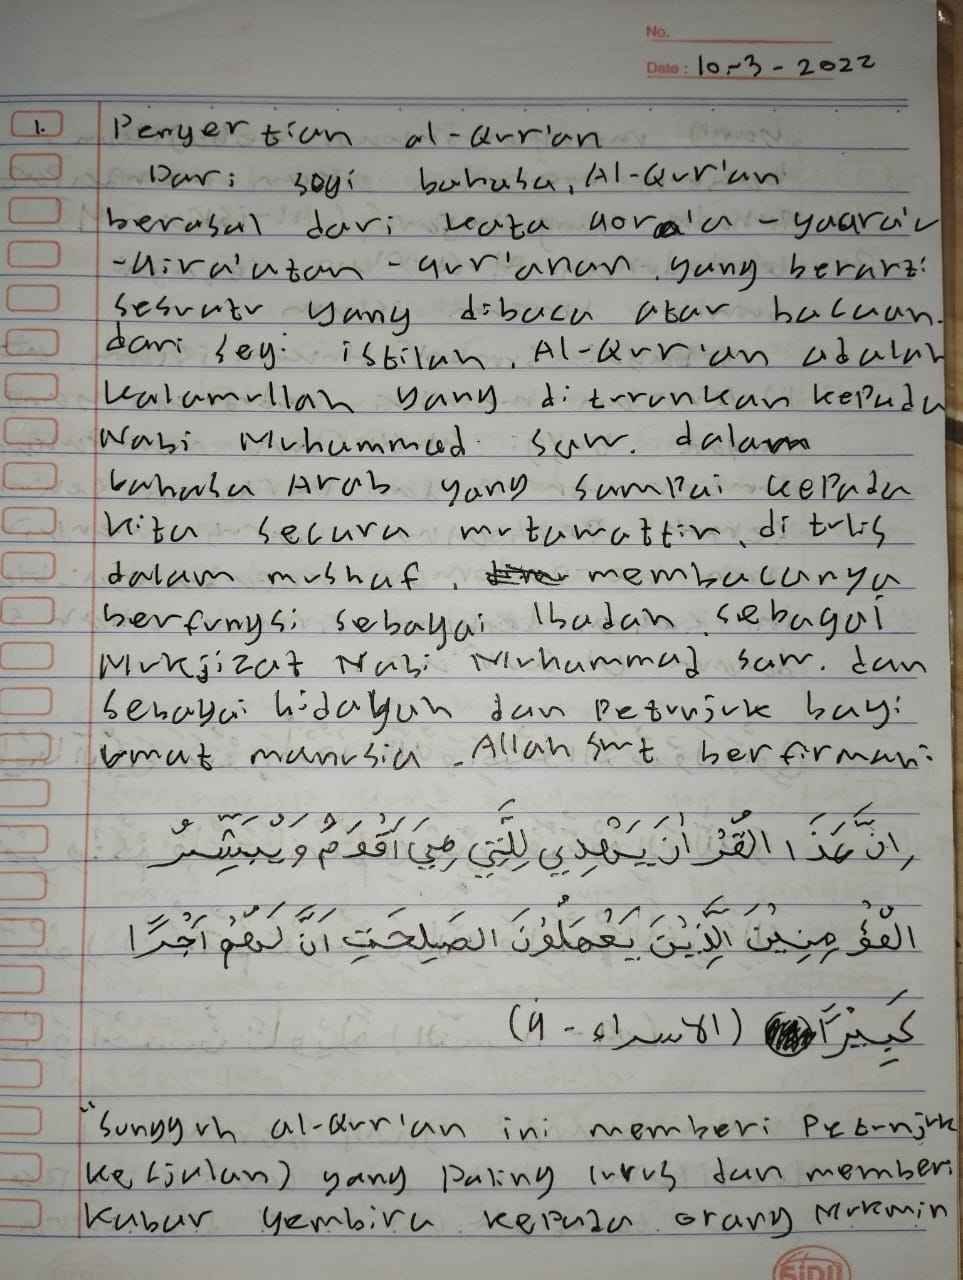 No.
Date : 10-3-2022
1. Pengertian al-Qur'an
Dari segi bahasa, Al-Qur'an
berasal dari kata qora'a - yaqra'u
- qira'atan - qur'anan yang berarti
sesuatu yang dibaca atau bacaan.
dari segi istilah, Al-Qur'an adalah
kalamullah yang diturunkan kepada
Nabi Muhammad saw. dalam
bahasa Arab yang sampai kepada
kita secara mutawattir, ditulis
dalam mushaf, membacanya
berfungsi sebagai Ibadah, sebagai
Mukjizat Nabi Muhammad saw. dan
sebagai hidayah dan Petunjuk bagi
umat manusia. Allah swt berfirman:
اِنَّ هَذَا الْقُرْاٰنَ يَهْدِي لِلَّتِي هِيَ اَقْوَمُ وَيُبَشِّرُ
الْمُؤْمِنِيْنَ الَّذِيْنَ يَعْمَلُوْنَ الصّٰلِحٰتِ اَنَّ لَهُمْ اَجْرًا
كَبِيْرًا (الاسراء - ٩)
"Sungguh al-Qur'an ini memberi Petunjuk
ke (jalan) yang paling lurus dan memberi
kabar gembira kepada orang Mukmin
SIDU